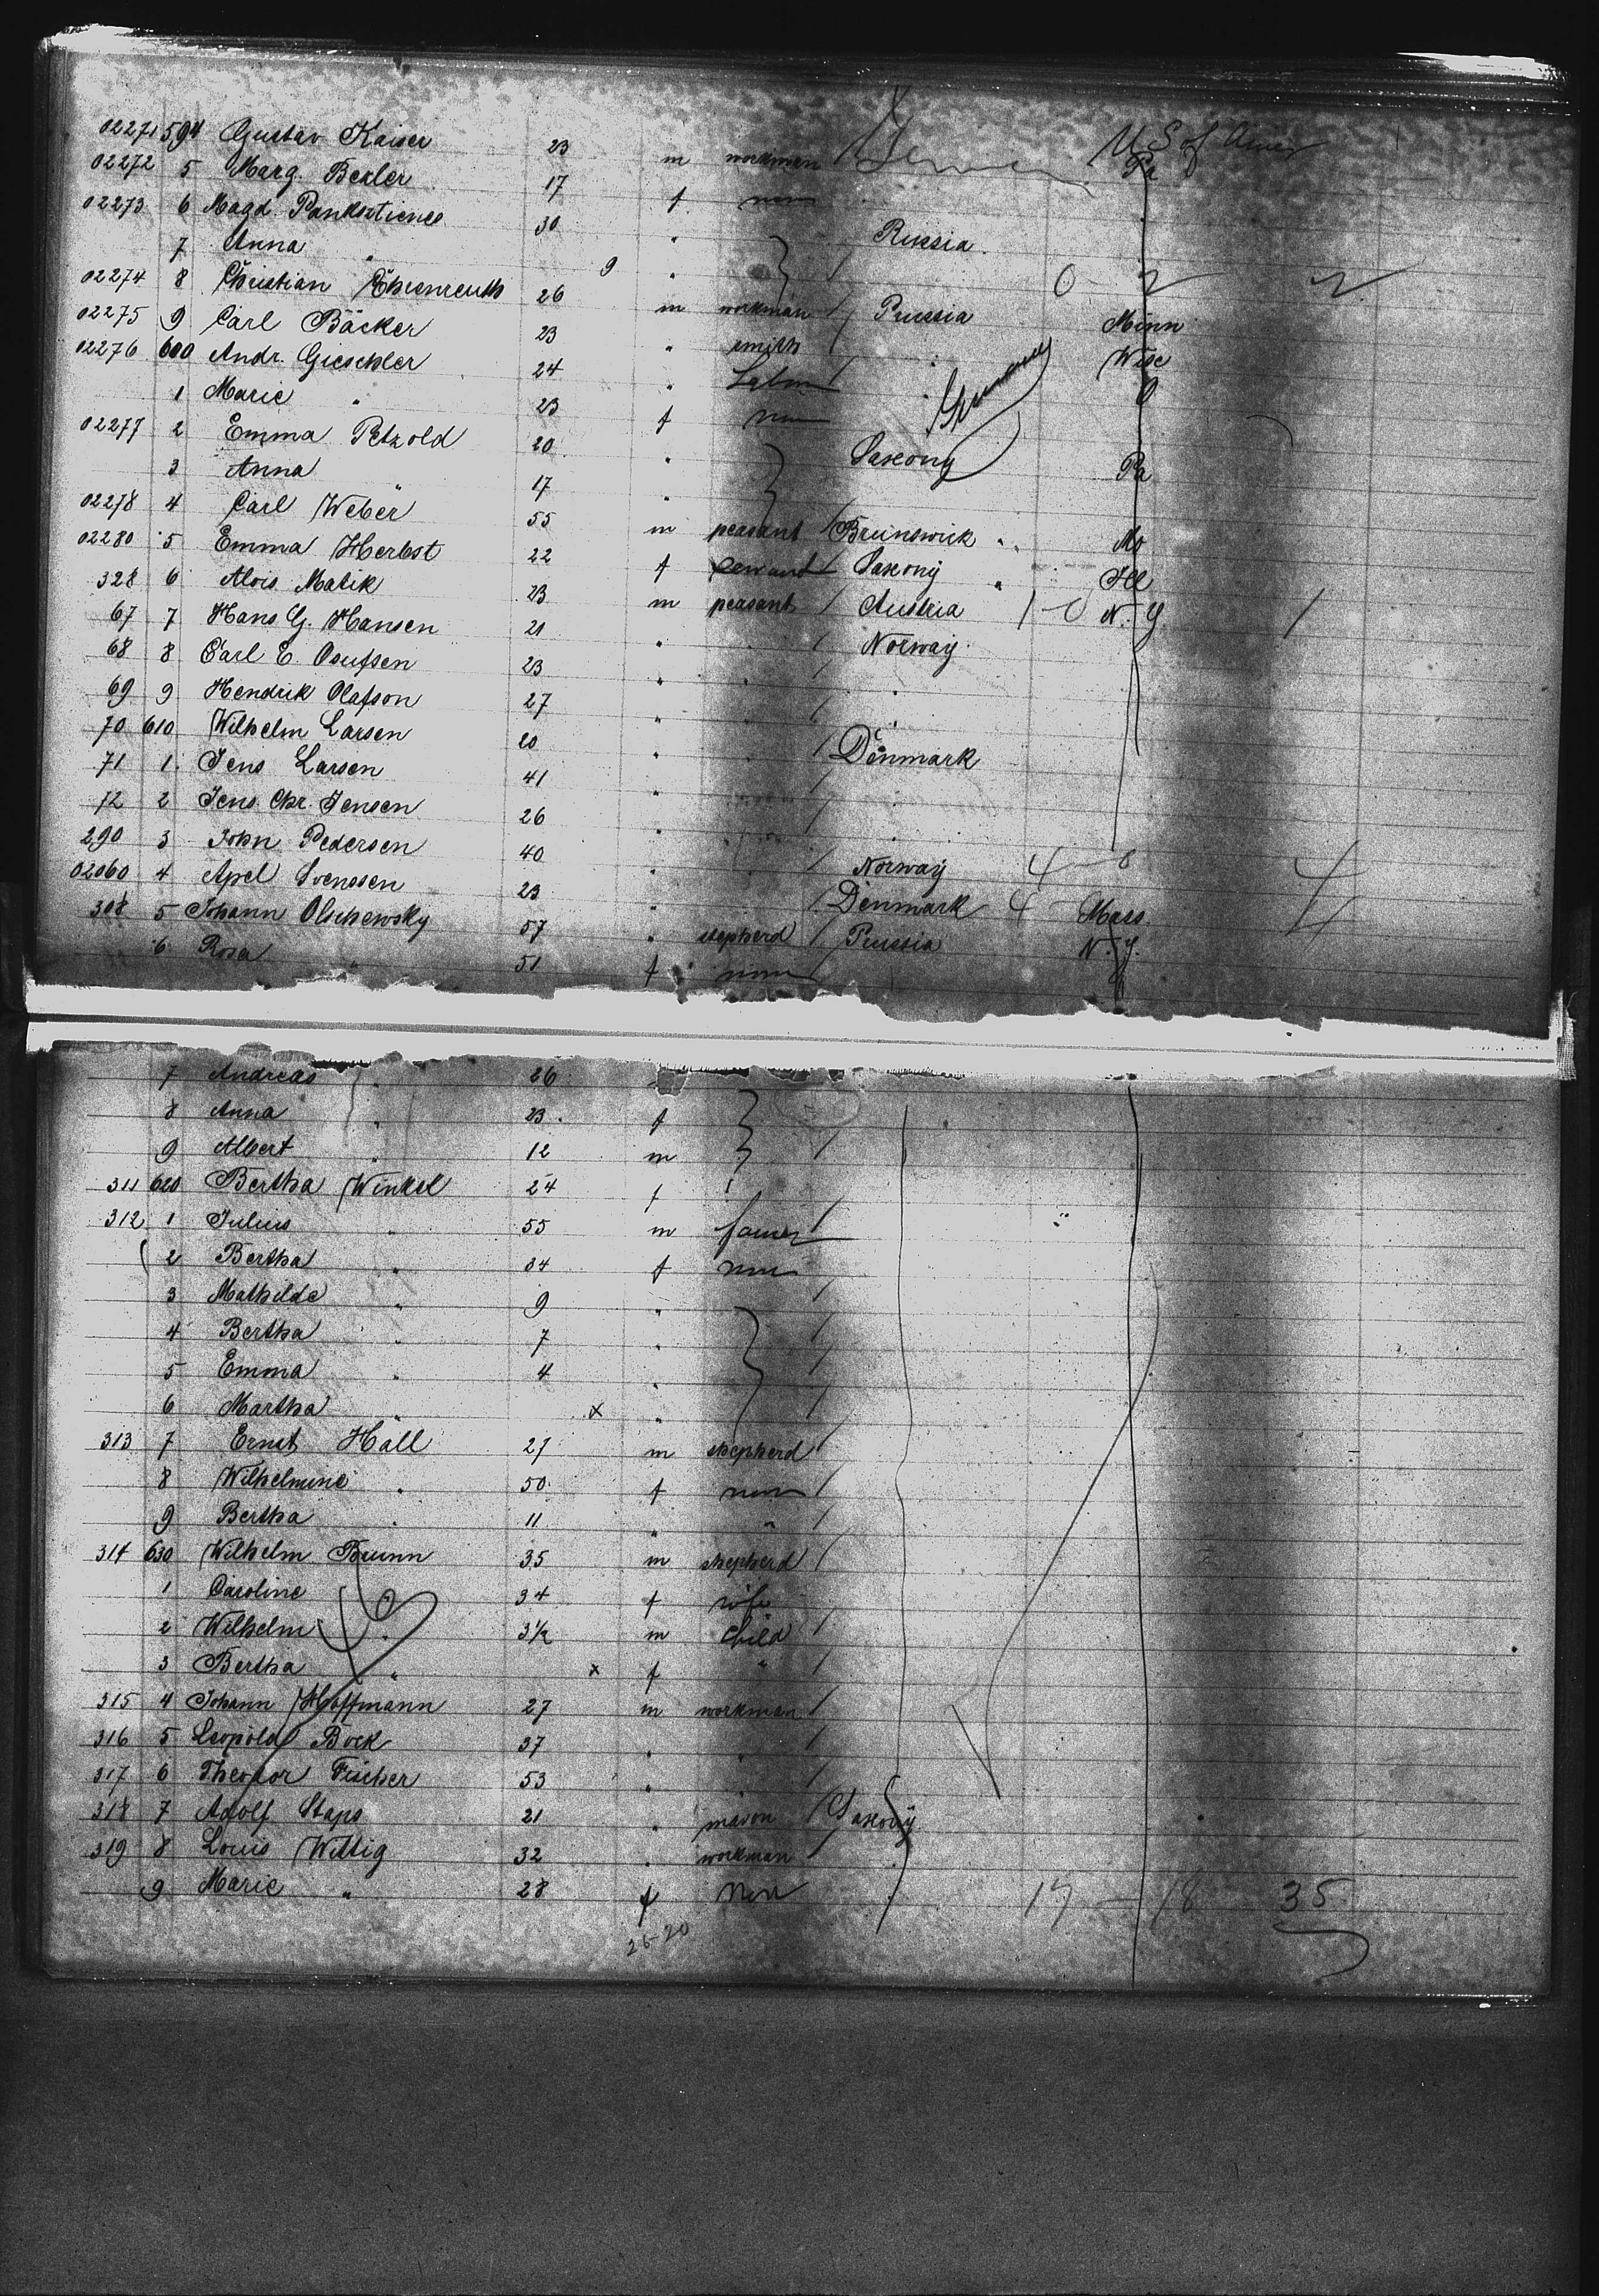 02271 594 Gustav Kaiser 23 m workman U S of Amer
02272 5 Marg. Bexler 17 f none Pa
02273 6 Magd. 30 " Russia
7 Anna " 9 "
02274 8 Christian Ehrenreuth 26 m workman Prussia Minn
02275 9 Carl Bäcker 23 " smith Wisc
02276 600 Andr. Gieschler 24 " Labor " Germany O
1 Marie " 23 f none
02277 2 Emma Petzold 20 " Saxony Pa
3 Anna " 17 "
02278 4 Carl Weber 55 m peasant Brunswick Mo
02280 5 Emma Herbst 22 f servant Saxony Ill
328 6 Alois Matik 23 m peasant Austria 1 - 0 N. Y. 1
67 7 Hans G. Hansen 21 " " Norway
68 8 Carl E. 23 " " "
69 9 Hendrik Olafson 27 " " "
70 610 Wilhelm Larsen 20 " " Denmark
71 1 Jens Larsen 41 " " "
72 2 Jens Chr. Jensen 26 " " "
290 3 John Pedersen 40 " " Norway 4 - 0 4
02060 4 Axel Svenssen 23 " Denmark 4 - Mass 4
308 5 Johann Olschewsky 57 " shepherd Prussia N. Y.
6 Rosa " 51 f none
7 Andreas " 26 "
8 Anna " 23 f
9 Albert " 12 m
311 620 Bertha Winkel 24 f
312 1 Julius " 55 m farmer
2 Bertha " 34 f none
3 Mathilde " 9 "
4 Bertha " 7 "
5 Emma " 4 "
6 Martha " x "
313 7 Ernst Hall 27 m shepherd
8 Wilhelmine " 50 f none
9 Bertha " 11 " "
314 630 Wilhelm Brunn 35 m shepherd
1 Caroline " 34 f wife
2 Wilhelm " 3½ m child
3 Bertha " x f "
315 4 Johann Hoffmann 27 m workman
316 5 Leopold Bock 37 " "
317 6 Theodor Fischer 53 " "
318 7 Adolf Staps 21 " mason Saxony
319 8 Louis Wittig 32 " workman "
9 Marie " 28 f non " 17 - 18 35
26-20